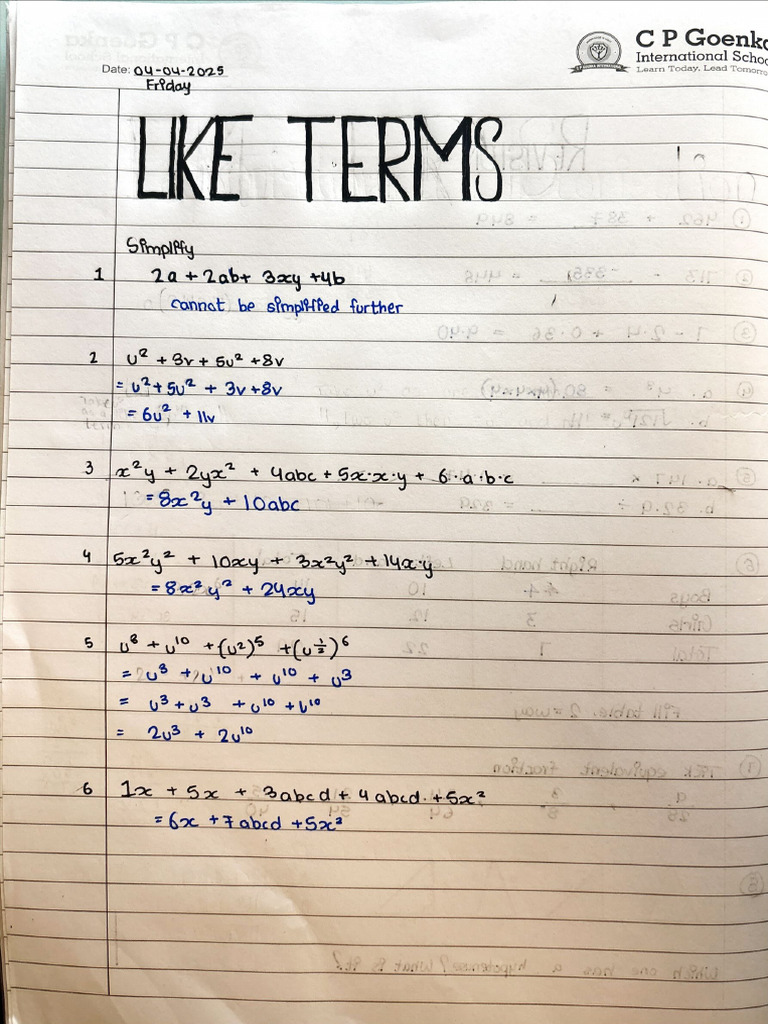 C P Goenka
International School
Learn Today. Lead Tomorro
Date: 04-04-2025
Friday
LIKE TERMS
Simplify
1 2a + 2ab + 3xy + 4b
cannot be simplified further
2 u² + 3v + 5u² + 8v
= u² + 5u² + 3v + 8v
= 6u² + 11v
3 x²y + 2yx² + 4abc + 5x·x·y + 6·a·b·c
= 8x²y + 10abc
4 5x²y² + 10xy + 3x²y² + 14x·y
= 8x²y² + 24xy
5 u⁸ + u¹⁰ + (u²)⁵ + (u^½)⁶
= u³ + u¹⁰ + u¹⁰ + u³
= u³ + u³ + u¹⁰ + u¹⁰
= 2u³ + 2u¹⁰
6 1x + 5x + 3abcd + 4abcd + 5x²
= 6x + 7abcd + 5x²